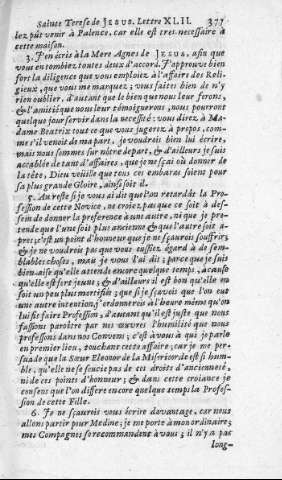 Sainte Terese de JESUS. Lettre XLII. 377
lez pût venir à Palence, car elle est tres necessaire à
cette maison.
3. J'en écris à la Mere Agnes de JESUS, afin que
vous en tombiez toutes deux d'accord. J'approuve bien
fort la diligence que vous emploiez à l'affaire des Reli-
gieux, que vous me marquez; vous faites bien de n'y
rien oublier, d'autant que le bien que nous leur ferons,
& l'amitié que nous leur témoignerons, nous pourront
quelque jour servir dans la necessité: vous direz à Ma-
dame Beatrix tout ce que vous jugerez à propos, com-
me s'il venoit de ma part, je voudrois bien lui écrire,
mais nous sommes sur nôtre depart, & d'ailleurs je suis
accablé de tant d'affaires, que je ne sçai où donner de
la tête, Dieu veiille que tous ces embaras soient pour
sa plus grande Gloire, ainsi soit-il.
5. Au reste si je vous ai dit que l'on retardât la Pro-
fession de cette Novice, ne croiez pas que ce soit à des-
sein de donner la preference à une autre, ni que je pre-
tende que l'une soit plus ancienne & que l'autre soit a-
prés; c'est un point d'honneur que je ne sçaurois souffrir,
& je ne voudrois pas que vous eussiez égard à de sem-
blables choses, mais je vous l'ai dit; parce que je suis
bien-aise qu'elle attende encore quelque temps, à cause
qu'elle est fort jeune; & d'ailleurs il est bon qu'elle en
soit un peu plus mortifiée; que si je sçavois que l'on eut
une autre intention, j'ordonnerois à l'heure même qu'on
lui fit faire Profession, d'autant qu'il est juste que nous
fassions paroître par nos œuvres l'humilité que nous
professons dans nos Convens; c'est à vous à qui je parle
en premier lieu, touchant cette affaire; car je me per-
suade que la Sœur Eleonor de la Misericorde est si hum-
ble, qu'elle ne se soucie pas de ces droits d'ancienneté,
ni de ces points d'honneur; & dans cette croiance je
consens que l'on differe encore quelque temps la Profes-
sion de cette Fille.
6. Je ne sçaurois vous écrire davantage, car nous
allons partir pour Medine; je me porte à mon ordinaire;
mes Compagnes se recommandent à vous; il n'y a pas
long-